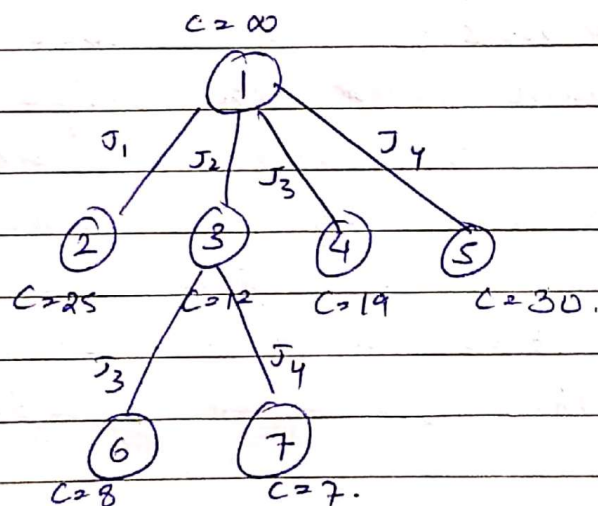 C = ∞
1
J1 J2 J3 J4
2 3 4 5
C=25 C=12 C=19 C=30.
J3 J4
6 7
C=8 C=7.